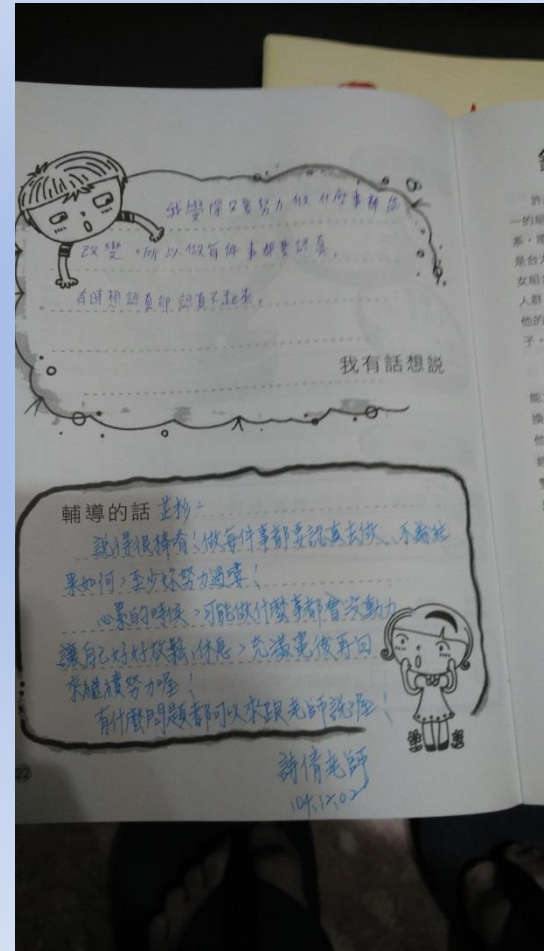 我覺得只要努力做什麼事都能
改變。所以做每件事都要認真。
有時想認真卻認真不起來。
我有話想說
輔導的話
說得很棒唷！做每件事都要認真去做、不論結
果如何，至少妳努力過囉！
心累的時候，可能做什麼事都會沒動力
讓自己好好放鬆、休息，充滿電後再回
來繼續努力喔！
有什麼問題都可以來跟老師說喔！
詩倩老師
104.12.02
22
許
一的組
系，
是台大
女組合
人群
他的
子，
能
換
他